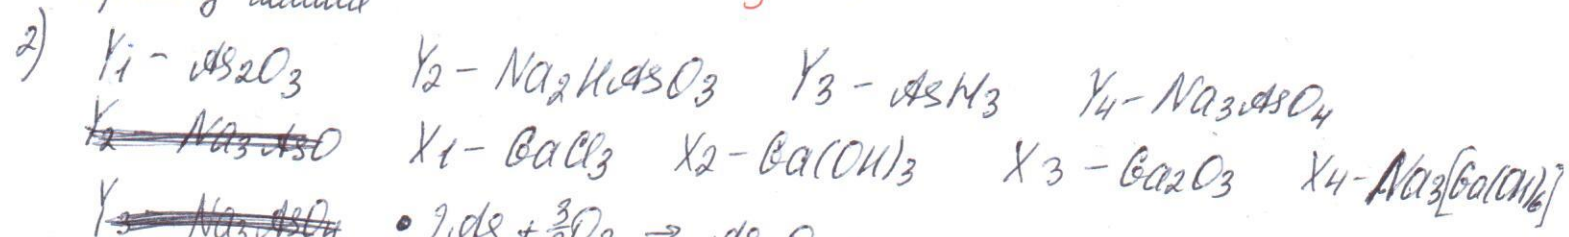 2) Y1 - As2O3 Y2 - Na2HAsO3 Y3 - AsH3 Y4 - Na3AsO4
Y2 - Na3AsO X1 - GaCl3 X2 - Ga(OH)3 X3 - Ga2O3 X4 - Na3[Ga(OH)6]
Y3 - Na3AsO4 • 2As + 3/2O2 →